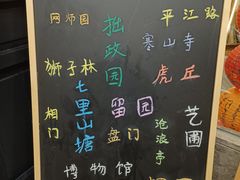 网师园
拙政园
平江路
寒山寺
狮子林
虎丘
七里山塘
留园
艺圃
相门
盘门
沧浪亭
博物馆